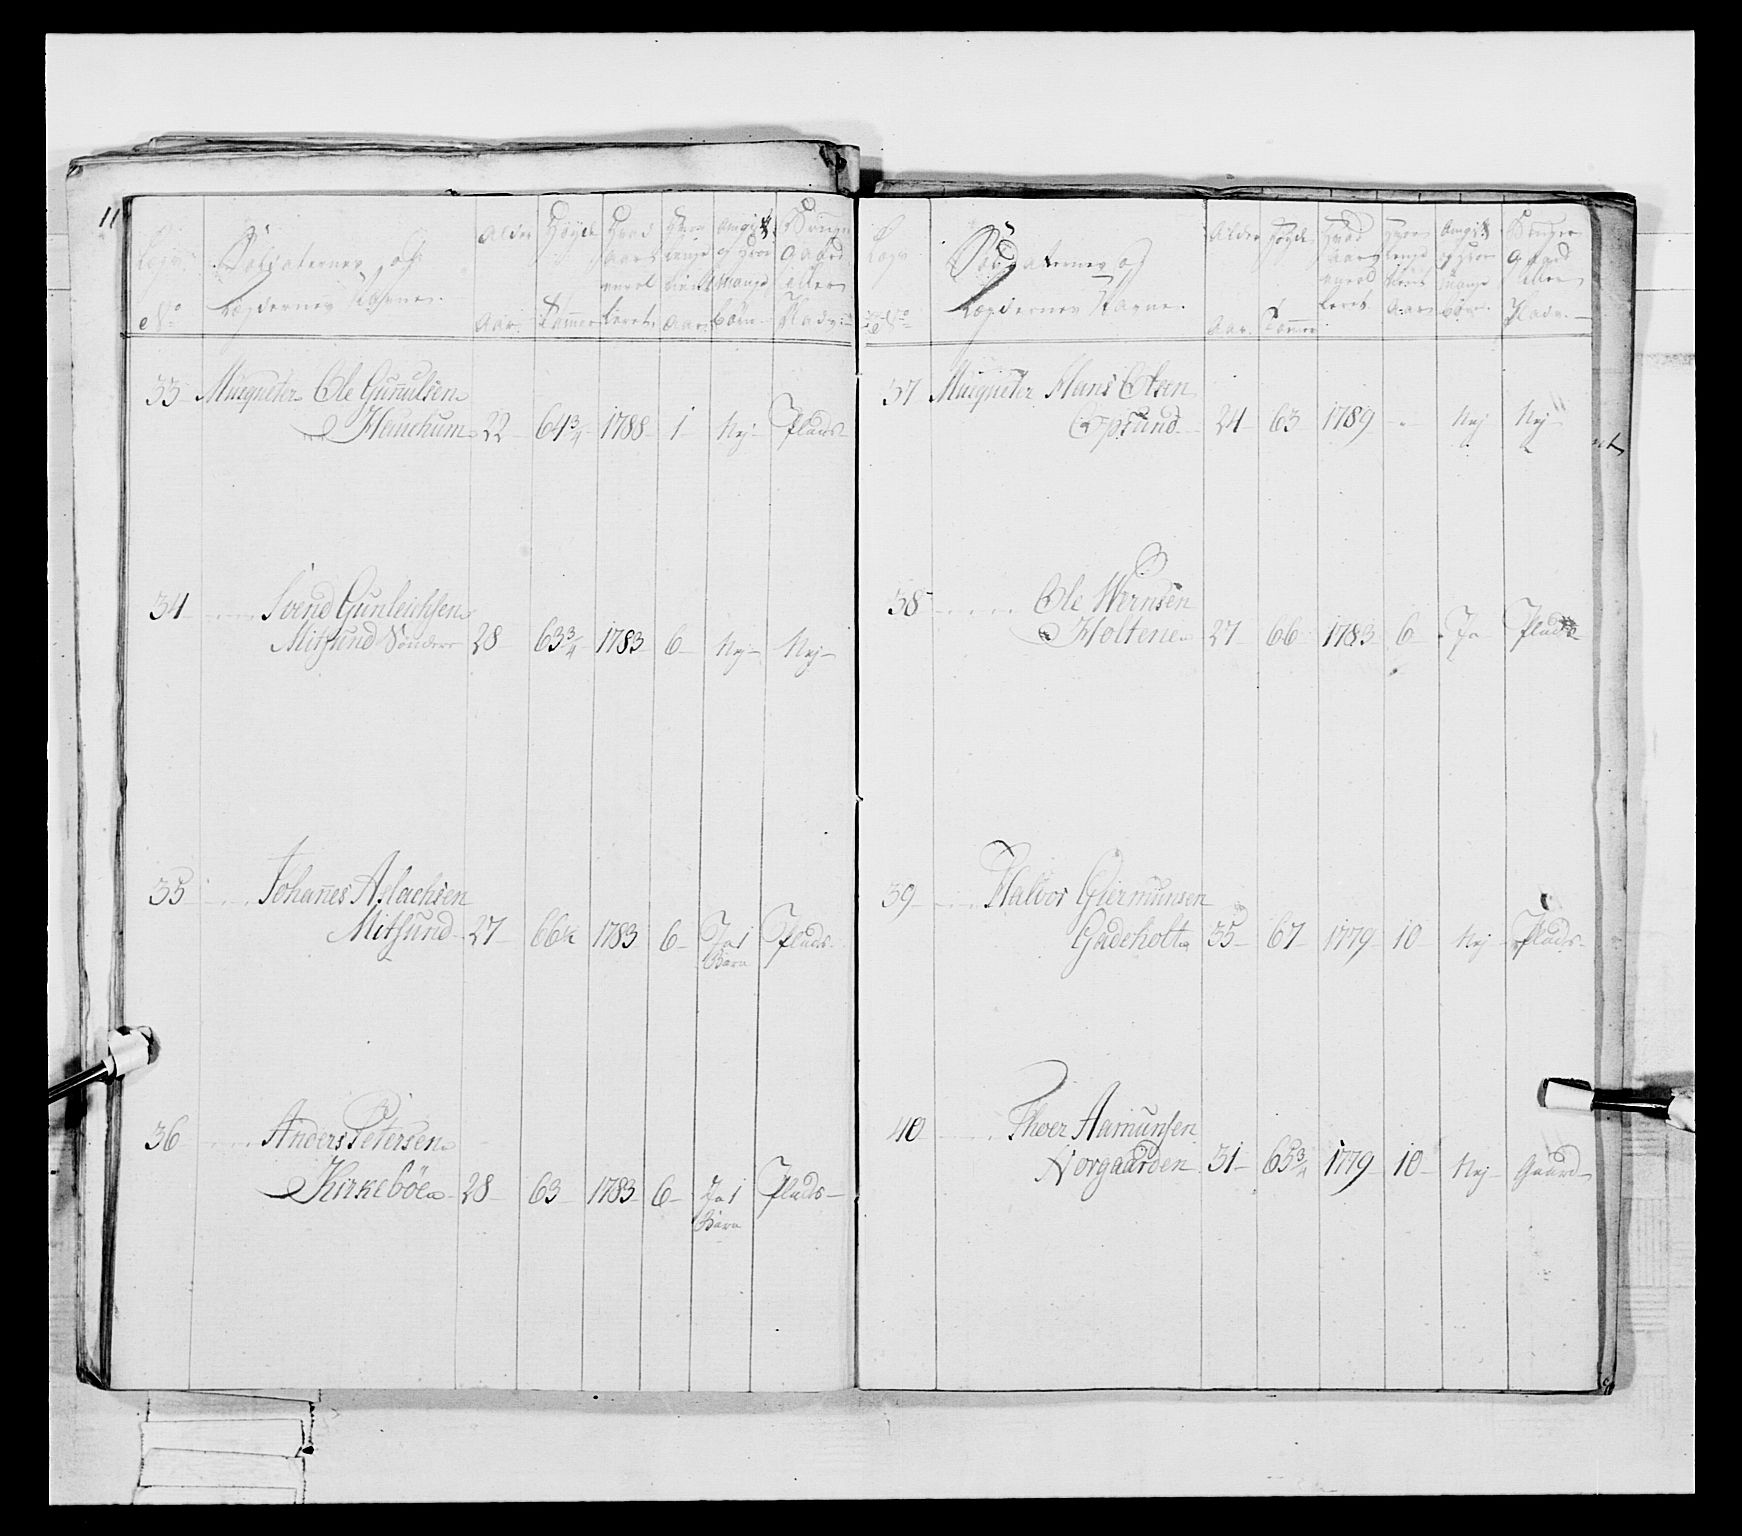 11
Lægd
No
Soldaternes og
Lægdernes Nafne.
Alder
Aar.
Høyde
Tommer
Hvad
Aar
enrol
leret
Hvor
længe
tient
Aar
Gaard
eller
Plads
33 Musqueter Ole Gunnulsen
Hauchum 22 64¾ 1788 1 Nej Plads
34 Svend Gunleichsen
Mitsund Søndere 28 63¾ 1783 6 Nej Nej
35 Johannes Aslachsen
Mitsund 27 66½ 1783 6 Ja 1 Plads
Barn
36 Anders Petersen
Kirkebøe 28 63 1783 6 Ja 1 Plads
Barn
Lægd
No
Soldaternes og
Lægdernes Nafne.
Alder
Aar.
Høyde
Tommer
Hvad
Aar
enrol
leret
Gaard
eller
Plads
37 Musqueter Hans Olsen
Opsund 24 63 1789 - Nej Nej
38 Ole Wernsen
Holtene 27 66 1783 6 Ja Plads
39 Halvor Giermunsen
Gadeholt 35 67 1779 10 Nej Plads
40 Thoer Aamunsen
Norgaarden 31 65¾ 1779 10 Nej Gaard